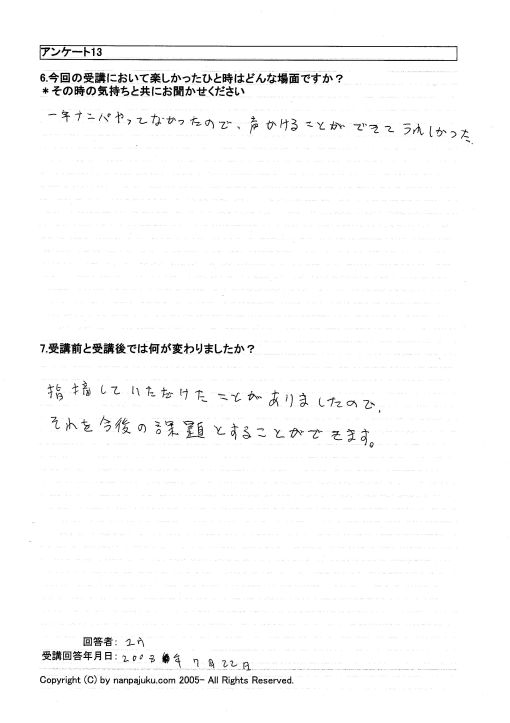 アンケート13
6.今回の受講において楽しかったひと時はどんな場面ですか?
*その時の気持ちと共にお聞かせください
一年ナンパやってなかったので、声かけることができてうれしかった.
7.受講前と受講後では何が変わりましたか?
指摘していただけたことがありましたので、
それを今後の課題とすることができます。
回答者:
受講回答年月日: 2008年7月22日
Copyright (C) by nanpajuku.com 2005- All Rights Reserved.